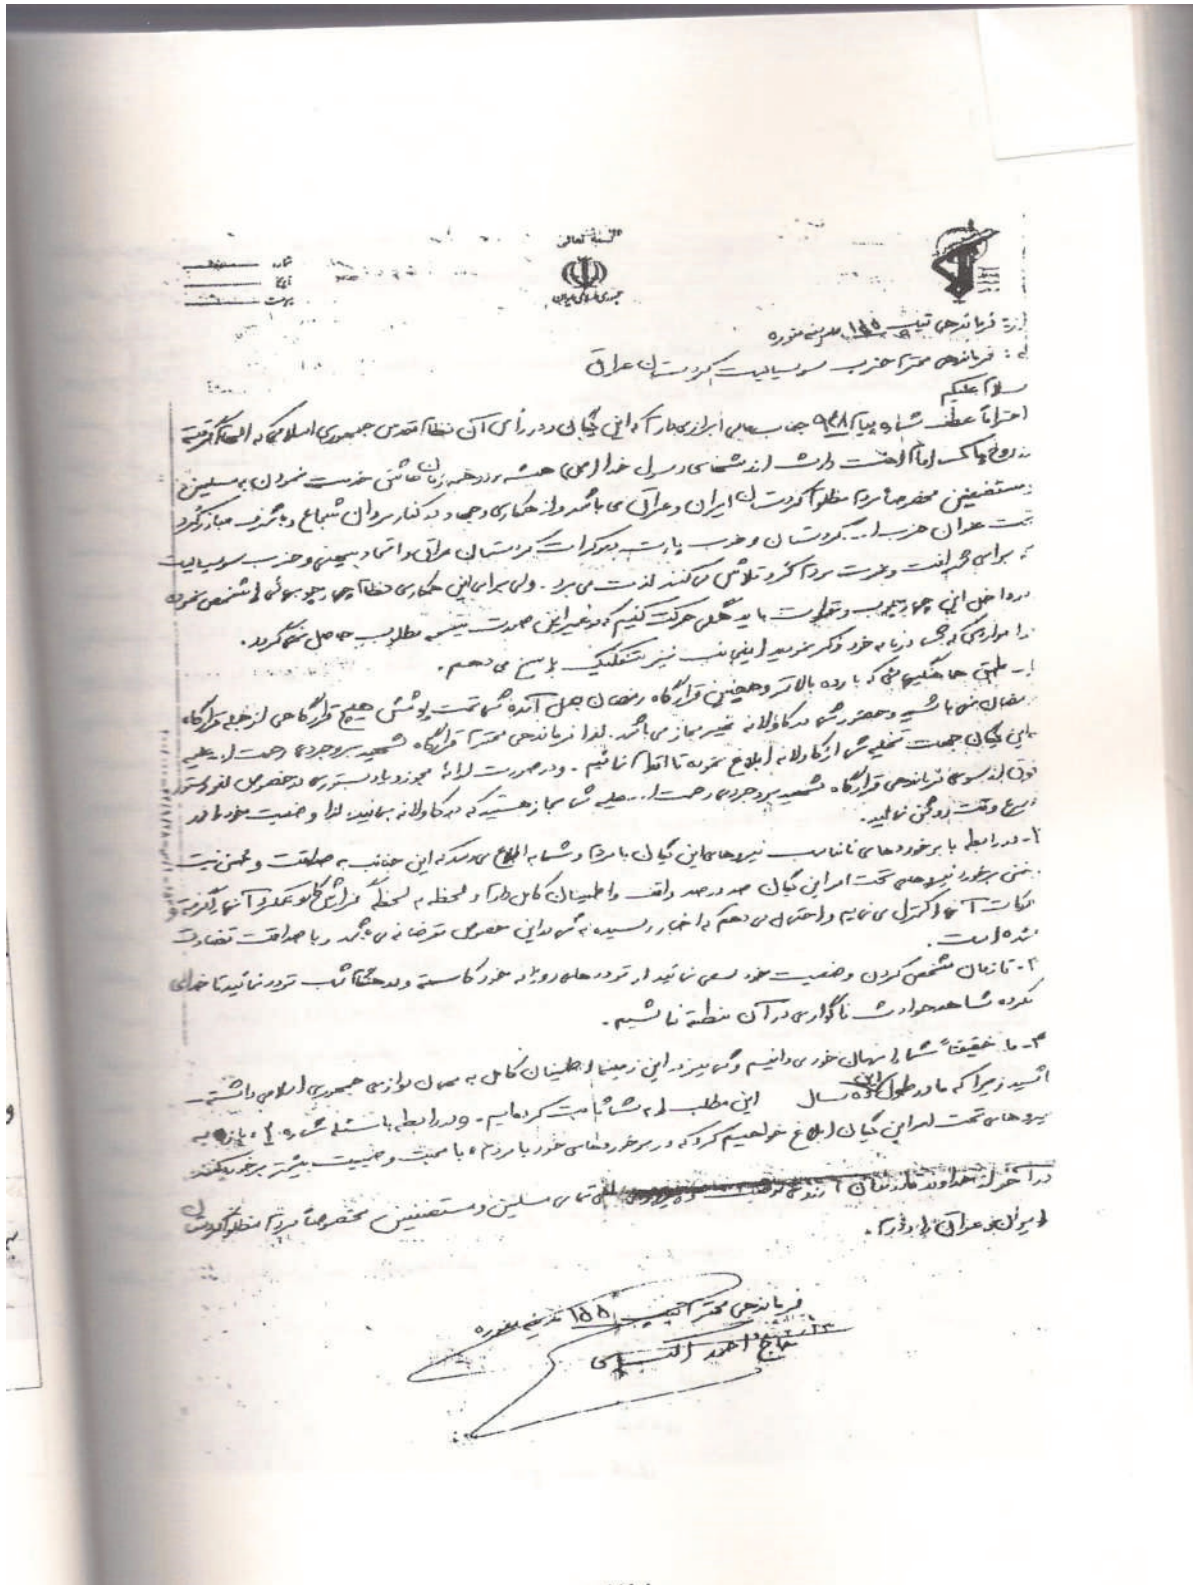 بسمه تعالی
جمهوری اسلامی ایران
شماره
تاریخ
پیوست
از: فرماندهی تیپ ۱۵۵ مدینه منوره
به: فرماندهی محترم حزب سوسیالیست کردستان عراق
سلام علیکم
احتراماً عطف شماره پیام ۹۳۸ جنابعالی ابراز می‌دارد که این یگان و در رأس آن نظام مقدس جمهوری اسلامی که الهام گرفته
از روح پاک امام امت و ارث اندیشه‌های رسول خدا (ص) همیشه و در همه زمان عاشق خدمت نمودن به مسلمین و
مستضعفین مخصوصاً مردم مظلوم کردستان ایران و عراق می باشد و از همکاری و جهاد در کنار مردان شجاع و باشرف مبارز کرد
تحت عنوان حزب ا... کردستان و حزب پارت دموکرات کردستان عراق و اتحاد میهنی و حزب سوسیالیست
که برای شرافت و عزت مردم کرد تلاش می کنند لذت می برد. ولی برای این همکاری نظام چهارچوبهائی را مشخص نموده
در داخل این چهارچوب و مقررات باید همگی حرکت کنیم که در غیر این صورت نتیجه مطلوب حاصل نمی گردد.
لذا مواردی که شما در نامه خود ذکر نمودید اینجانب نیز به تفکیک پاسخ می دهم.
۱- طبق هماهنگیهائی که با رده بالاتر و همچنین قرارگاه رمضان بعمل آمده شما تحت پوشش هیچ قرارگاهی از جمله قرارگاه
رمضان نمی باشید و حضور شما در کاولانه غیر مجاز می باشد. لذا فرماندهی محترم قرارگاه شهید بروجردی رحمت ا... علیه
به این یگان جهت تخلیه شما از کاولانه ابلاغ نموده تا اقدام نمائیم. و در صورت ارائه مجوز و یا دستوری در خصوص لغو دستور
فوق از سوی فرماندهی قرارگاه شهید بروجردی رحمت ا... علیه شما مجاز هستید که در کاولانه بمانید، لذا وضعیت خود را در
اسرع وقت روشن نمائید.
۲- در رابطه با برخوردهای نامناسب نیروهای این یگان با مردم و شما به اطلاع می رساند که این جانب به صداقت و حسن نیت
برخورد نیروهای تحت امر این یگان صد در صد واقف و اطمینان کامل دارم و لحظه به لحظه گزارش کار و عملکرد آنها را گرفته و
حرکات آنها را کنترل می نمایم و احتمال می دهم که اخبار رسیده به شما در این خصوص مغرضانه می باشد و با صداقت قضاوت
نشده است.
۳- تا زمان مشخص کردن وضعیت خود سعی نمائید از ترددهای روزانه خود کاسته و در هنگام شب تردد ننمائید تا خدای
نکرده شاهد حوادث ناگواری در آن منطقه نباشیم.
۴- ما حقیقتاً شما را مهمان خود می دانیم و شما نیز در این زمینه اطمینان کامل به مهمان نوازی جمهوری اسلامی داشته
باشید زیرا که ما در طول سال این مطلب را به شما ثابت کرده‌ایم. و در رابطه با مسئله شماره ۲ باز به
نیروهای تحت امر این یگان ابلاغ خواهیم کرد که در برخوردهای خود با مردم با محبت و صمیمیت بیشتر برخورد کنند
در آخر از خداوند قادر منان آرزوی تمامی مسلمین و مستضعفین مخصوصاً مردم مظلوم کردستان
ایران و عراق را دارم.
فرماندهی محترم تیپ ۱۵۵ مدینه منوره
حاج احمد